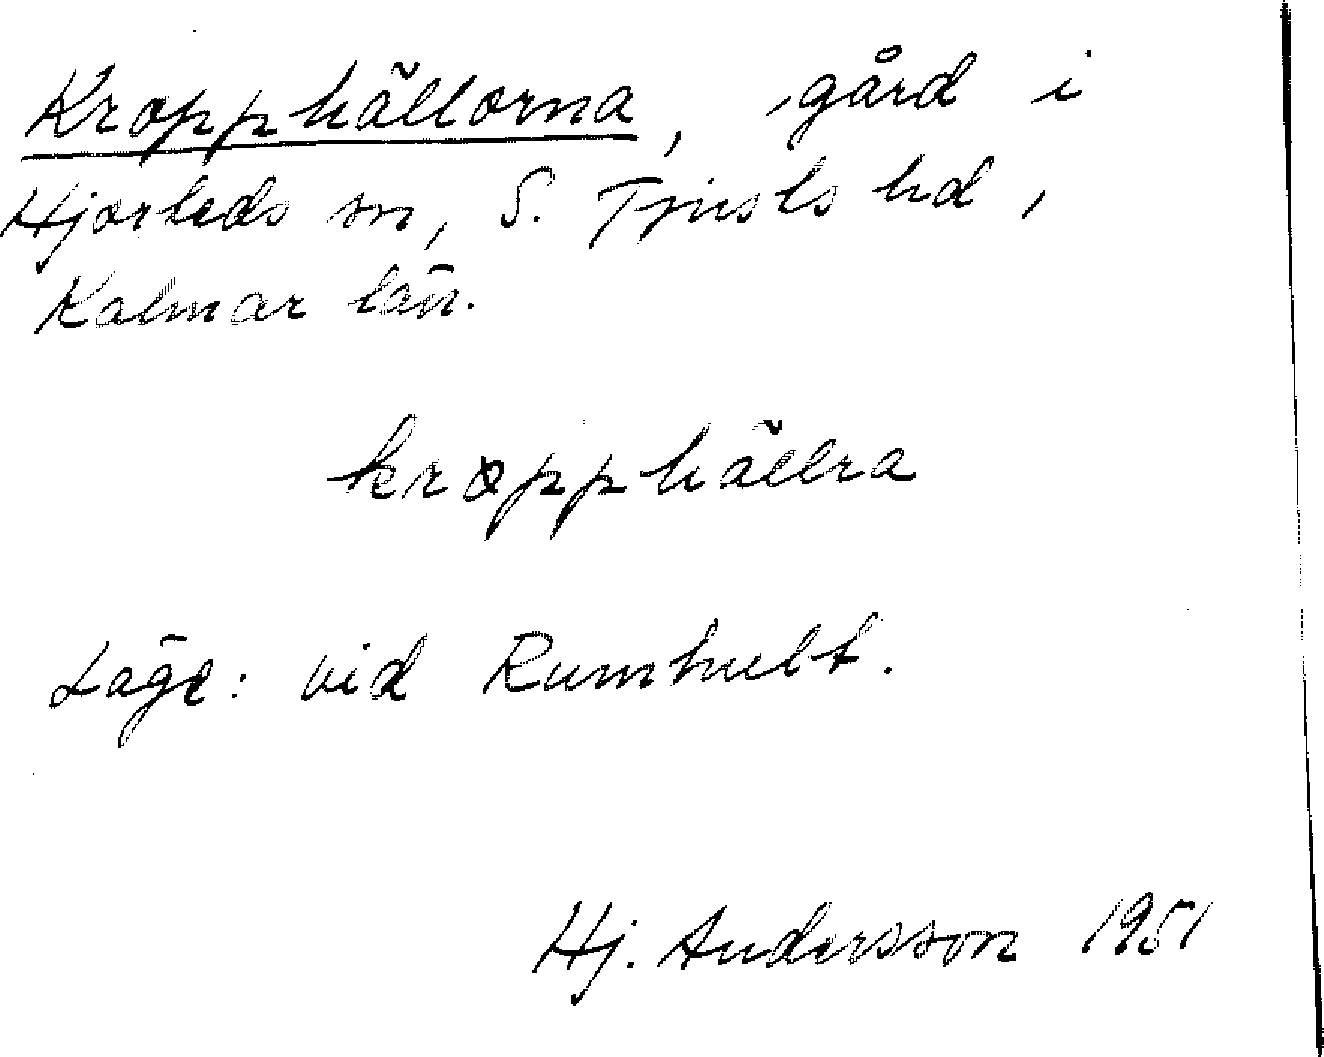 Kropphällorna, gård i
Hjorteds sn, S. Tjusts hd,
Kalmar län.
kropphällra
Läge: vid Rumhult.
Hj. Andersson 1951